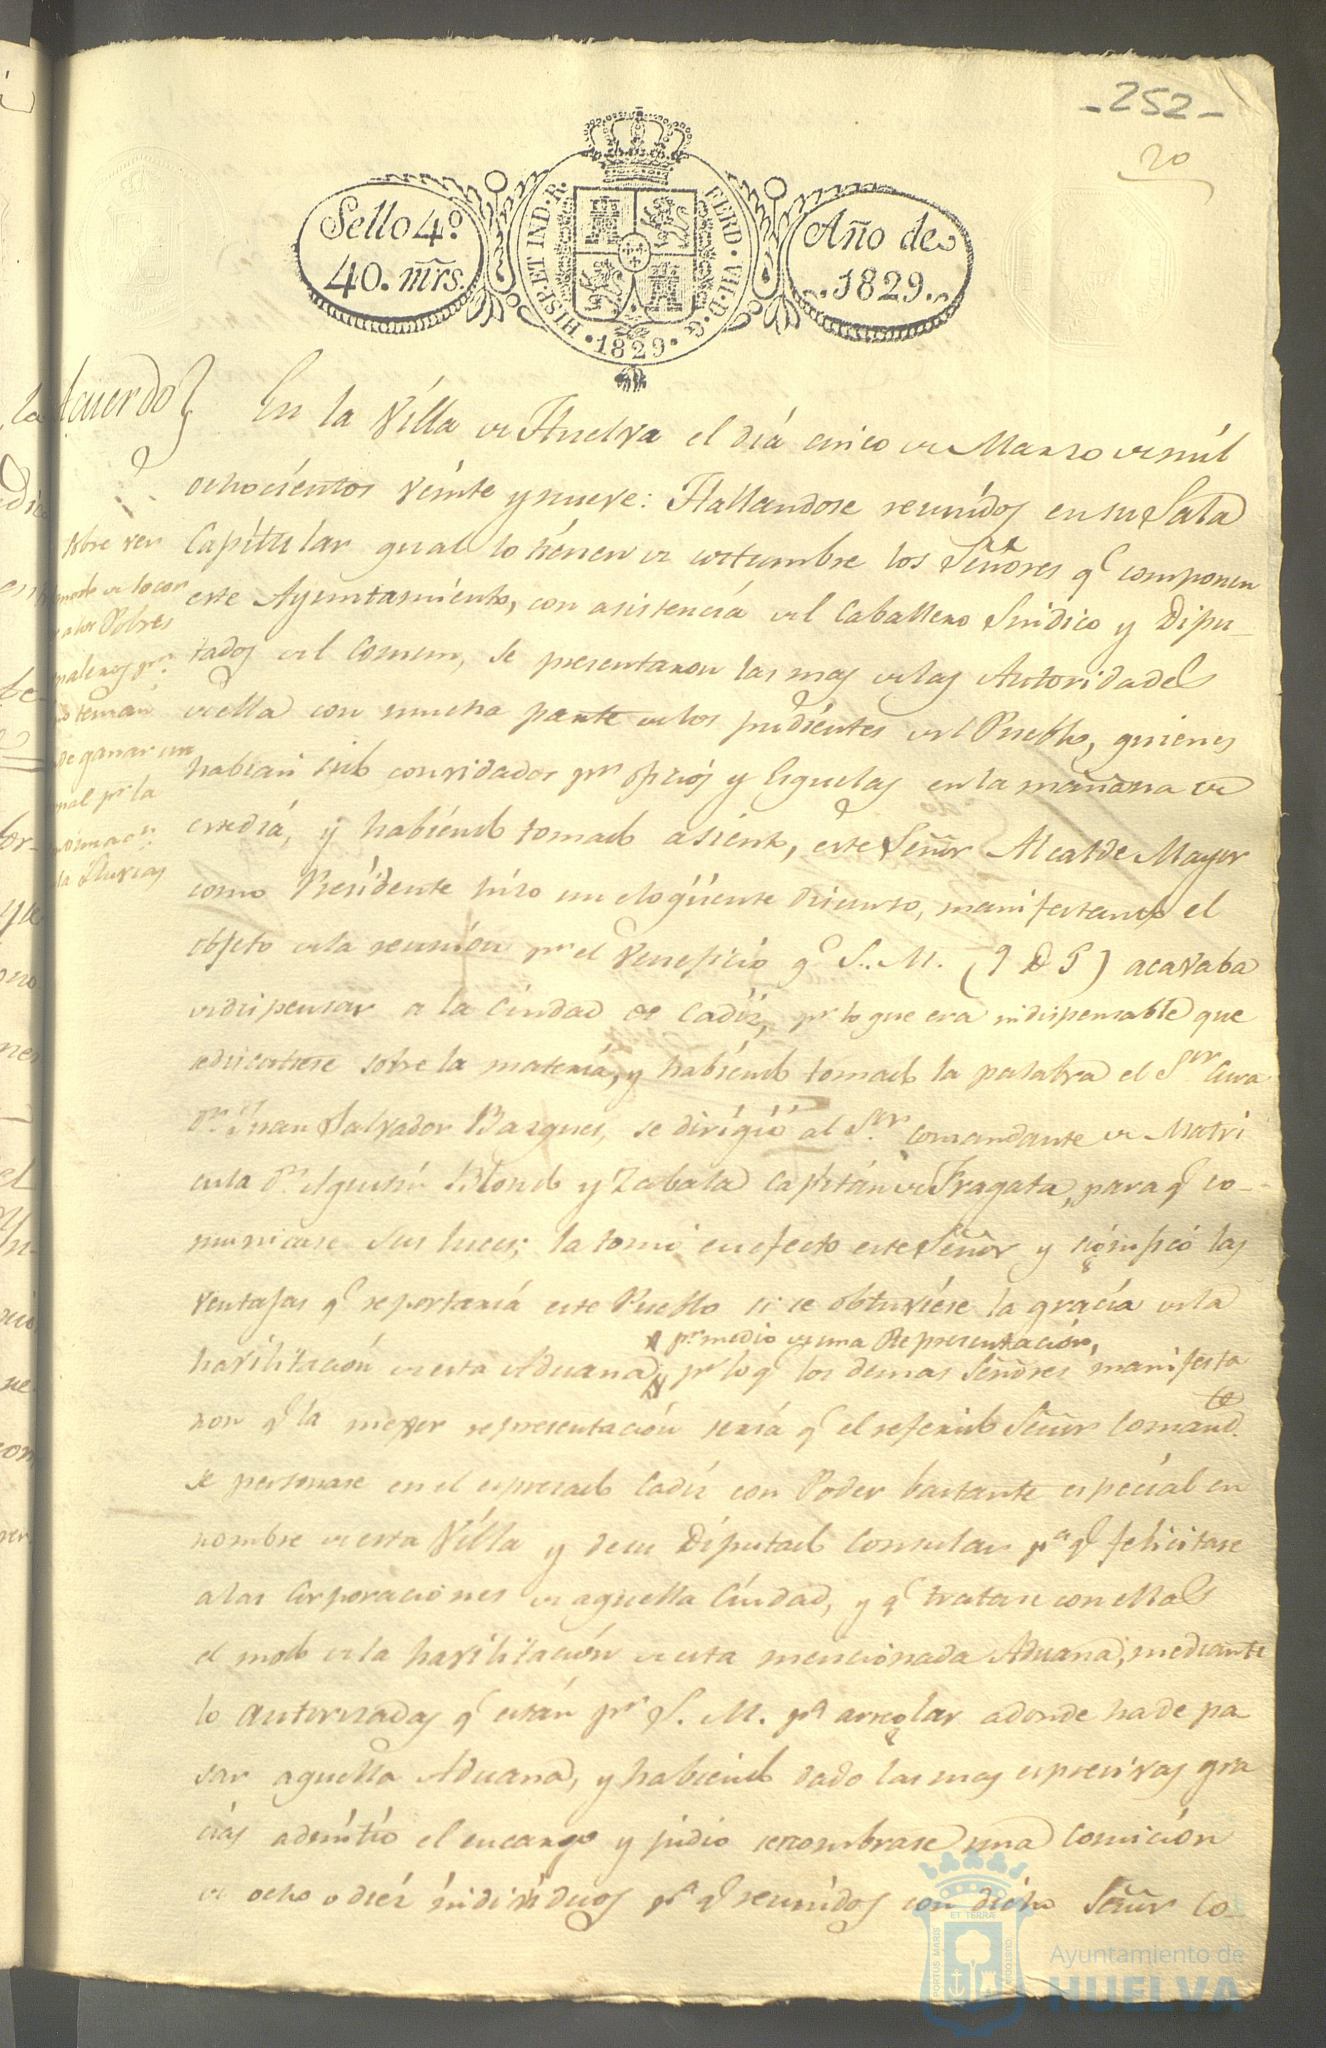 -252-
20
Sello 4º
40. mrs.
HISP. ET IND. R. FERD. VII. D. G.
1829
Año de
1829.
Acuerdo
En la Villa de Huelva el dia cinco de Marzo de mil
ochocientos veinte y nueve: Hallandose reunidos en su Sala
Capitular qual lo tienen de costumbre los Señores qe componen
este Ayuntamiento, con asistencia del Caballero Sindico y Dipu-
tados del Comun, se presentaron las mas de las Autoridades
de ella con mucha parte de los pudientes del Pueblo, quienes
habian sido convidados pr oficios y Esquelas en la mañana de
este dia, y habiendo tomado asiento, este Señor Alcalde Mayor
como Presidente hizo un eloqüente discurso, manifestando el
objeto de la reunion pr el Veneficio qe S. M. (q D G) acavaba
de dispensar a la Ciudad de Cadiz, pr lo que era indispensable que
se discutiese sobre la materia, y habiendo tomado la palabra el Sor Cura
Dn Juan Salvador Bazques, se dirigió al Sor Comandante de Matri
cula Dn Agustin Blond y Zabala Capitan de Fragata, para qe co-
municase sus luces; la tomó en efecto este Señor y significó las
ventajas qe reportaria este Pueblo si se obtuviese la gracia de la
pr medio de una Representacion,
havilitacion de esta Aduana, pr lo qe los demas Señores manifesta
ron qe la mejor representacion seria qe el referido Señor Comandte
se personase en el espresado Cadiz con Poder bastante especial en
nombre de esta Villa y de su Diputado Consular pa qe felicitase
a las Corporaciones de aquella Ciudad, y qe tratase con ellas
el modo de la havilitacion de esta mencionada Aduana, mediante
lo autorizadas qe están pr S. M. pa arreglar adonde ha de pa-
sar aquella Aduana, y habiendo dado las mas espresivas gra
cias admitió el encargo y pidio se nombrase una Comicion
de ocho o diez individuos pa qe reunidos con dicho Señor Co-
Sobre ver
modo de locor
a los Pobres
naleros pr
no tenian
de ganar un
nal pr la
la Lluvias
PORTUS MARIS ET TERRAE CUSTODIA
Ayuntamiento de
HUELVA